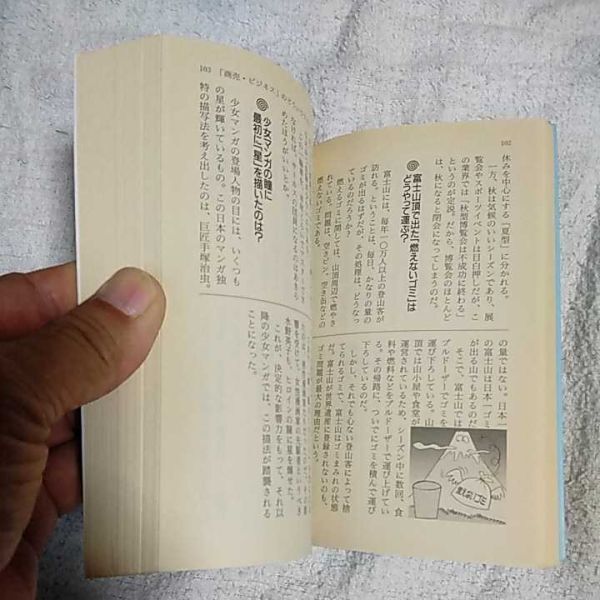 102
休みを中心にする「夏型」に分かれる。
一方、秋は気候のいいシーズンであり、展
覧会やスポーツイベントは目白押しだが、こ
の業界では「秋型博覧会は不成功に終わる」
というのが定説。だから、博覧会のほとんど
は、秋になると閉会になってしまうのだ。
富士山頂で出た「燃えないゴミ」は
どうやって運ぶ?
富士山には、毎年一〇万人以上の登山客が
訪れる。ということは、毎日、かなりの量の
ゴミが出るはずだが、その処理は、どうなっ
ているのだろうか?
燃えるゴミに関しては、山頂周辺で燃やさ
れている。問題は、空きビン、空き缶などの
燃えないゴミである。
の量ではない。日本一
の富士山は日本一ゴミ
が出る山でもあるのだ。
そこで、富士山では
ブルドーザーでゴミを
運び下ろしている。山
頂では山小屋や食堂が
運営されているため、シーズン中に数回、食
料や燃料などをブルドーザーで運び上げてい
る。その帰路に、ついでにゴミを積んで運び
下ろしているのだ。
しかし、それでも心ない登山客によって捨
てられるゴミで、富士山はゴミまみれの状態
だ。富士山が世界遺産に登録されないのも、
ゴミ問題が最大の理由だという。
103 「商売・ビジネス」の
めたほうがいいとか。
少女マンガの瞳に
最初に「星」を描いたのは?
少女マンガの登場人物の目には、いくつも
の星が輝いているもの。この日本のマンガ独
特の描写法を考え出したのは、巨匠手塚治虫。
水野英子も、ヒロインの瞳に星を輝せた。
これが、決定的な影響力をもって、それ以
降の少女マンガでは、この描法が踏襲される
ことになった。